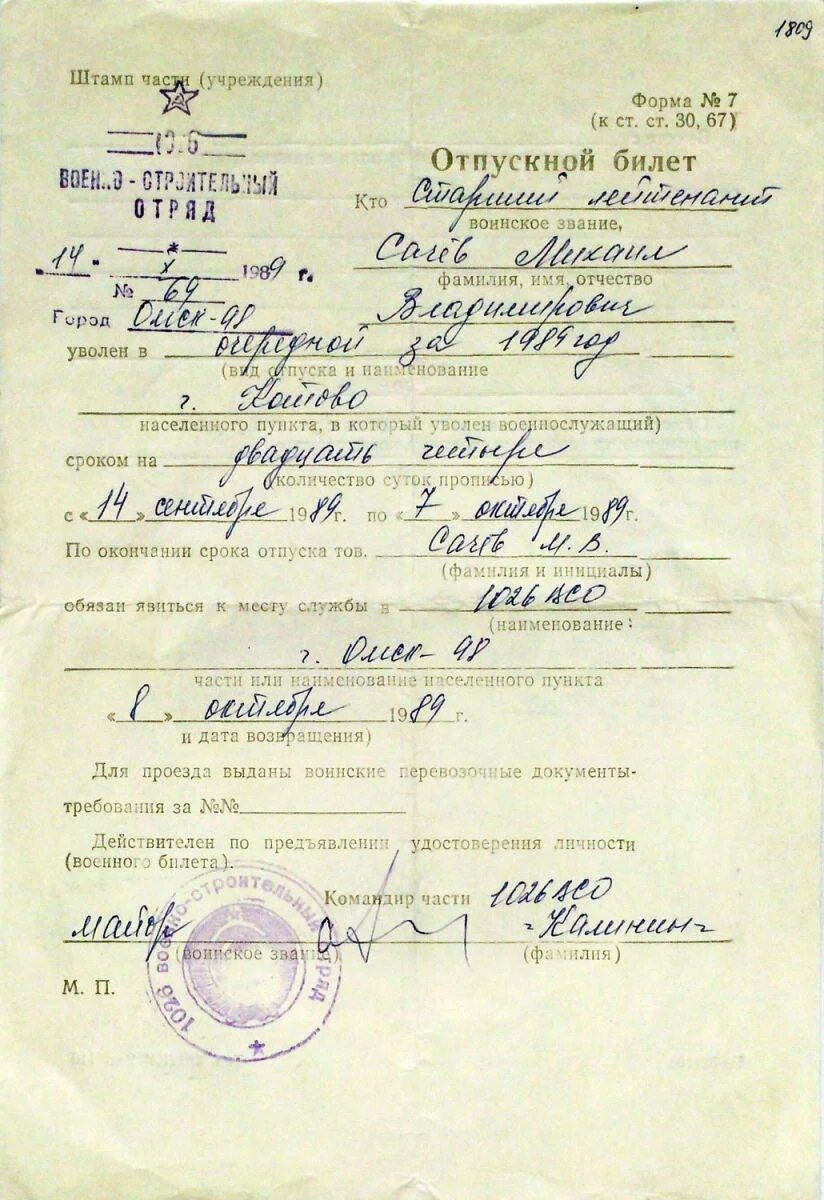 1809
Штамп части (учреждения)
Форма № 7
(к ст. ст. 30, 67)
1026
ВОЕННО-СТРОИТЕЛЬНЫЙ
ОТРЯД
Отпускной билет
Кто Старший лейтенант
воинское звание,
Сачёв Михаил
"14" X 1989 г.
фамилия, имя, отчество
№ 69
Владимирович
Город Омск-98
уволен в очередной за 1989 год
(вид отпуска и наименование
г. Котово
населенного пункта, в который уволен военнослужащий)
сроком на двадцать четыре
(количество суток прописью)
с «14» сентября 1989г. по «7» октября 1989г.
По окончании срока отпуска тов. Сачёв М. В.
(фамилия и инициалы)
обязан явиться к месту службы в 1026 ВСО
(наименование
г. Омск-98
части или наименование населенного пункта
«8» октября 1989 г.
и дата возвращения)
Для проезда выданы воинские перевозочные документы-
требования за №№
Действителен по предъявлении удостоверения личности
(военного билета).
Командир части 1026 ВСО
майор Калинин
(воинское звание) (фамилия)
М. П.
1026 военно-строительный отряд